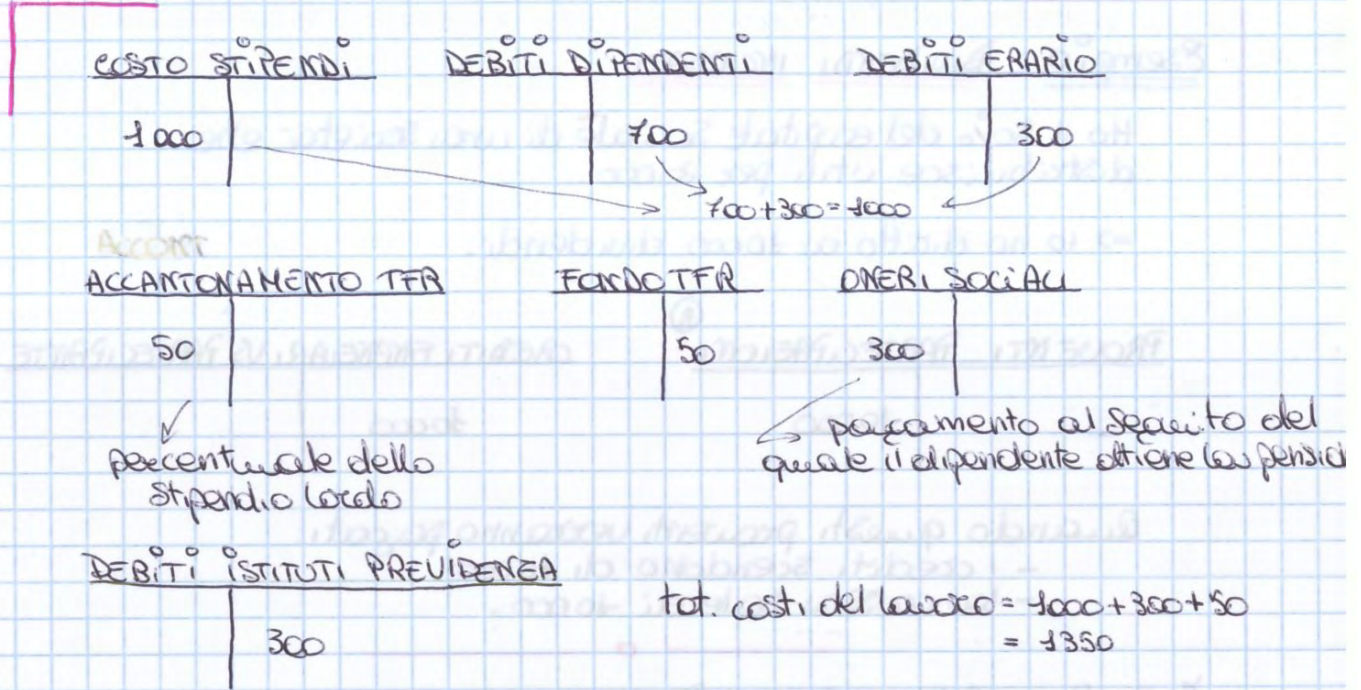 COSTO STIPENDI DEBITI DIPENDENTI DEBITI ERARIO
1000 700 300
700+300=1000
ACCONT
ACCANTONAMENTO TFR FONDO TFR ONERI SOCIALI
50 50 300
percentuale dello
stipendio lordo
pagamento al seguito del
quale il dipendente ottiene la pensio
DEBITI ISTITUTI PREVIDENZA
300
tot. costi del lavoro = 1000+300+50
= 1350